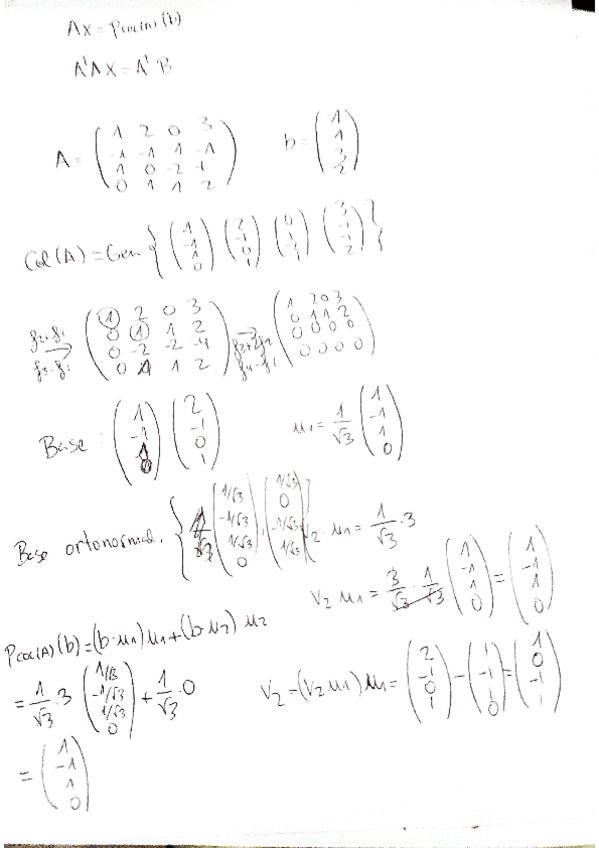 Ax = Pcol(A) (b)
AᵗAx = Aᵗ B
A = ( 1 2 0 3 ; -1 -1 1 -1 ; 1 0 -2 -1 ; 0 1 1 2 ) b = ( 1 ; 1 ; 3 ; 2 )
Col(A) = Gen { ( 1 ; -1 ; 1 ; 0 ) ( 2 ; -1 ; 0 ; 1 ) ( 0 ; 1 ; -2 ; 1 ) ( 3 ; -1 ; -1 ; 2 ) }
f2+f1 f3-f1 → ( 1 2 0 3 ; 0 1 1 2 ; 0 -2 -2 -4 ; 0 1 1 2 ) f3+2f2 f4-f1 → ( 1 2 0 3 ; 0 1 1 2 ; 0 0 0 0 ; 0 0 0 0 )
Base : ( 1 ; -1 ; 1 ; 0 ) ( 2 ; -1 ; 0 ; 1 ) u1 = 1/√3 ( 1 ; -1 ; 1 ; 0 )
Base ortonormal. { ( 1/√3 ; -1/√3 ; 1/√3 ; 0 ) , ( 1/√3 ; 0 ; -1/√3 ; 1/√3 ) } V2 · u1 = 1/√3 · 3
V2 u1 = 3/√3 · 1/√3 ( 1 ; -1 ; 1 ; 0 ) = ( 1 ; -1 ; 1 ; 0 )
Pcol(A) (b) = (b·u1)u1 + (b·u2) u2
= 1/√3 · 3 ( 1/√3 ; -1/√3 ; 1/√3 ; 0 ) + 1/√3 · 0 V2 - (V2 u1) u1 = ( 2 ; -1 ; 0 ; 1 ) - ( 1 ; -1 ; 1 ; 0 ) = ( 1 ; 0 ; -1 ; 1 )
= ( 1 ; -1 ; 1 ; 0 )